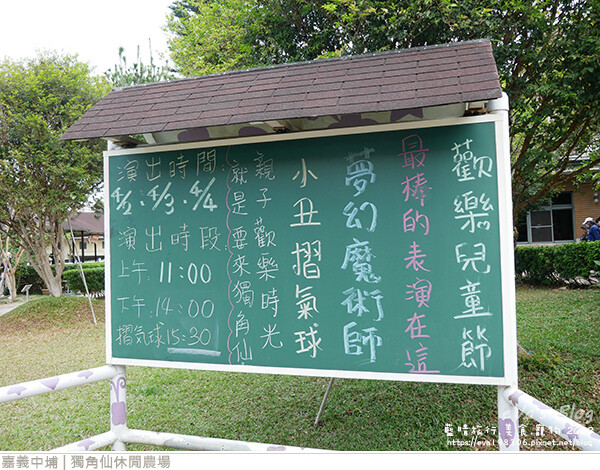 歡樂兒童節
最棒的表演在這
夢幻魔術師
小丑摺氣球
親子歡樂時光
就是要來獨角仙
演出時間:
4/2、4/3、4/4
演出時段:
上午:11:00
下午:14:00
摺氣球15:30
藍晴旅行 美食 寵物
嘉義中埔 | 獨角仙休閒農場